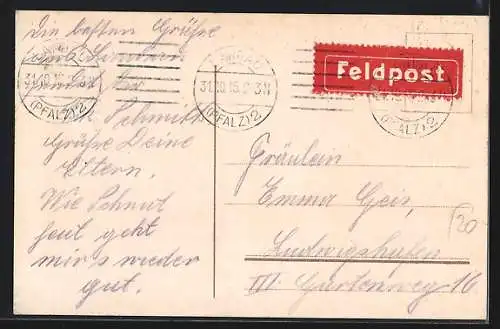 Die besten Grüße
Schmitt
Grüße Deine
Eltern.
Wie Schnut
heut geht
mir's wieder
gut.
LANDAU
31.10.15.
(PFALZ) 2
Feldpost
(PFALZ) 2
Fräulein
Emma Geis,
Ludwigshafen
III. Gartenweg 16
20